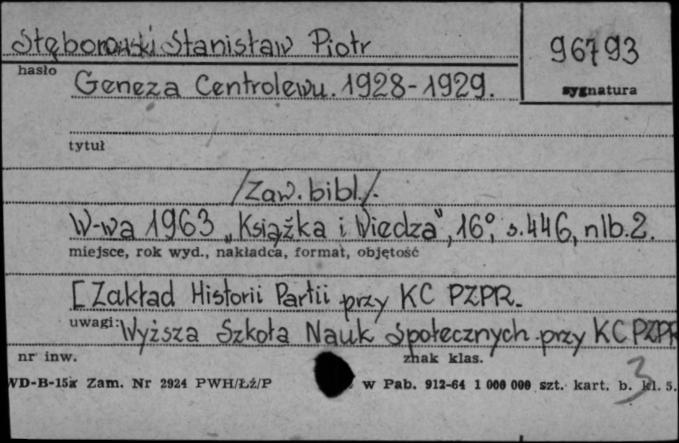 Stęborowski Stanisław Piotr
96793
hasło
sygnatura
Geneza Centrolewu. 1928-1929.
tytuł
/Zaw. bibl./.
W-wa 1963 „Książka i Wiedza", 16°, s.446, nlb.2.
miejsce, rok wyd., nakładca, format, objętość
[Zakład Historii Partii przy KC PZPR.
uwagi: Wyższa Szkoła Nauk Społecznych przy KC PZPR
nr inw.
znak klas.
WD-B-15x Zam. Nr 2924 PWH/Łź/P w Pab. 912-64 1 000 000 szt. kart. b. kl. 5.
3